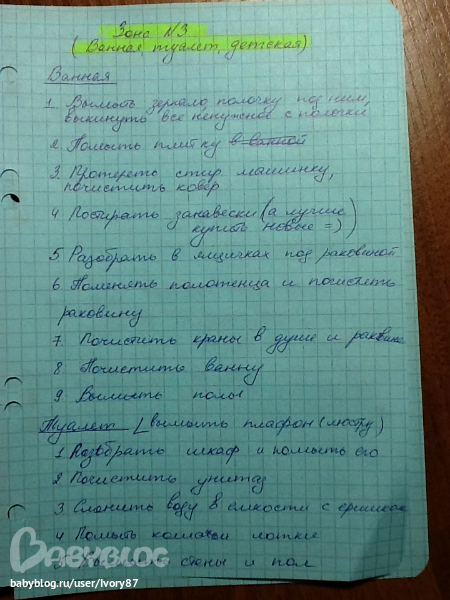 Зона №3
(Ванная, туалет, детская)
Ванная
1. Вымыть зеркало, полочку под ним,
выкинуть все ненужное с полочки
2. Помыть плитку в ванной
3. Протереть стир. машинку,
почистить ковер
4 Постирать занавески (а лучше
купить новые =))
5 Разобрать в ящичках под раковиной
6. Поменять полотенца и почистить
раковину
7. Почистить краны в душе и раковине
8. Почистить ванну
9. Вымыть полы
Туалет (вымыть плафон (люстру)
1 Разобрать шкаф и помыть его
2 Почистить унитаз
3 Сменить воду в емкости с ершиком
4 Помыть лотки
стены и пол
BABYBLOG
babyblog.ru/user/Ivory87